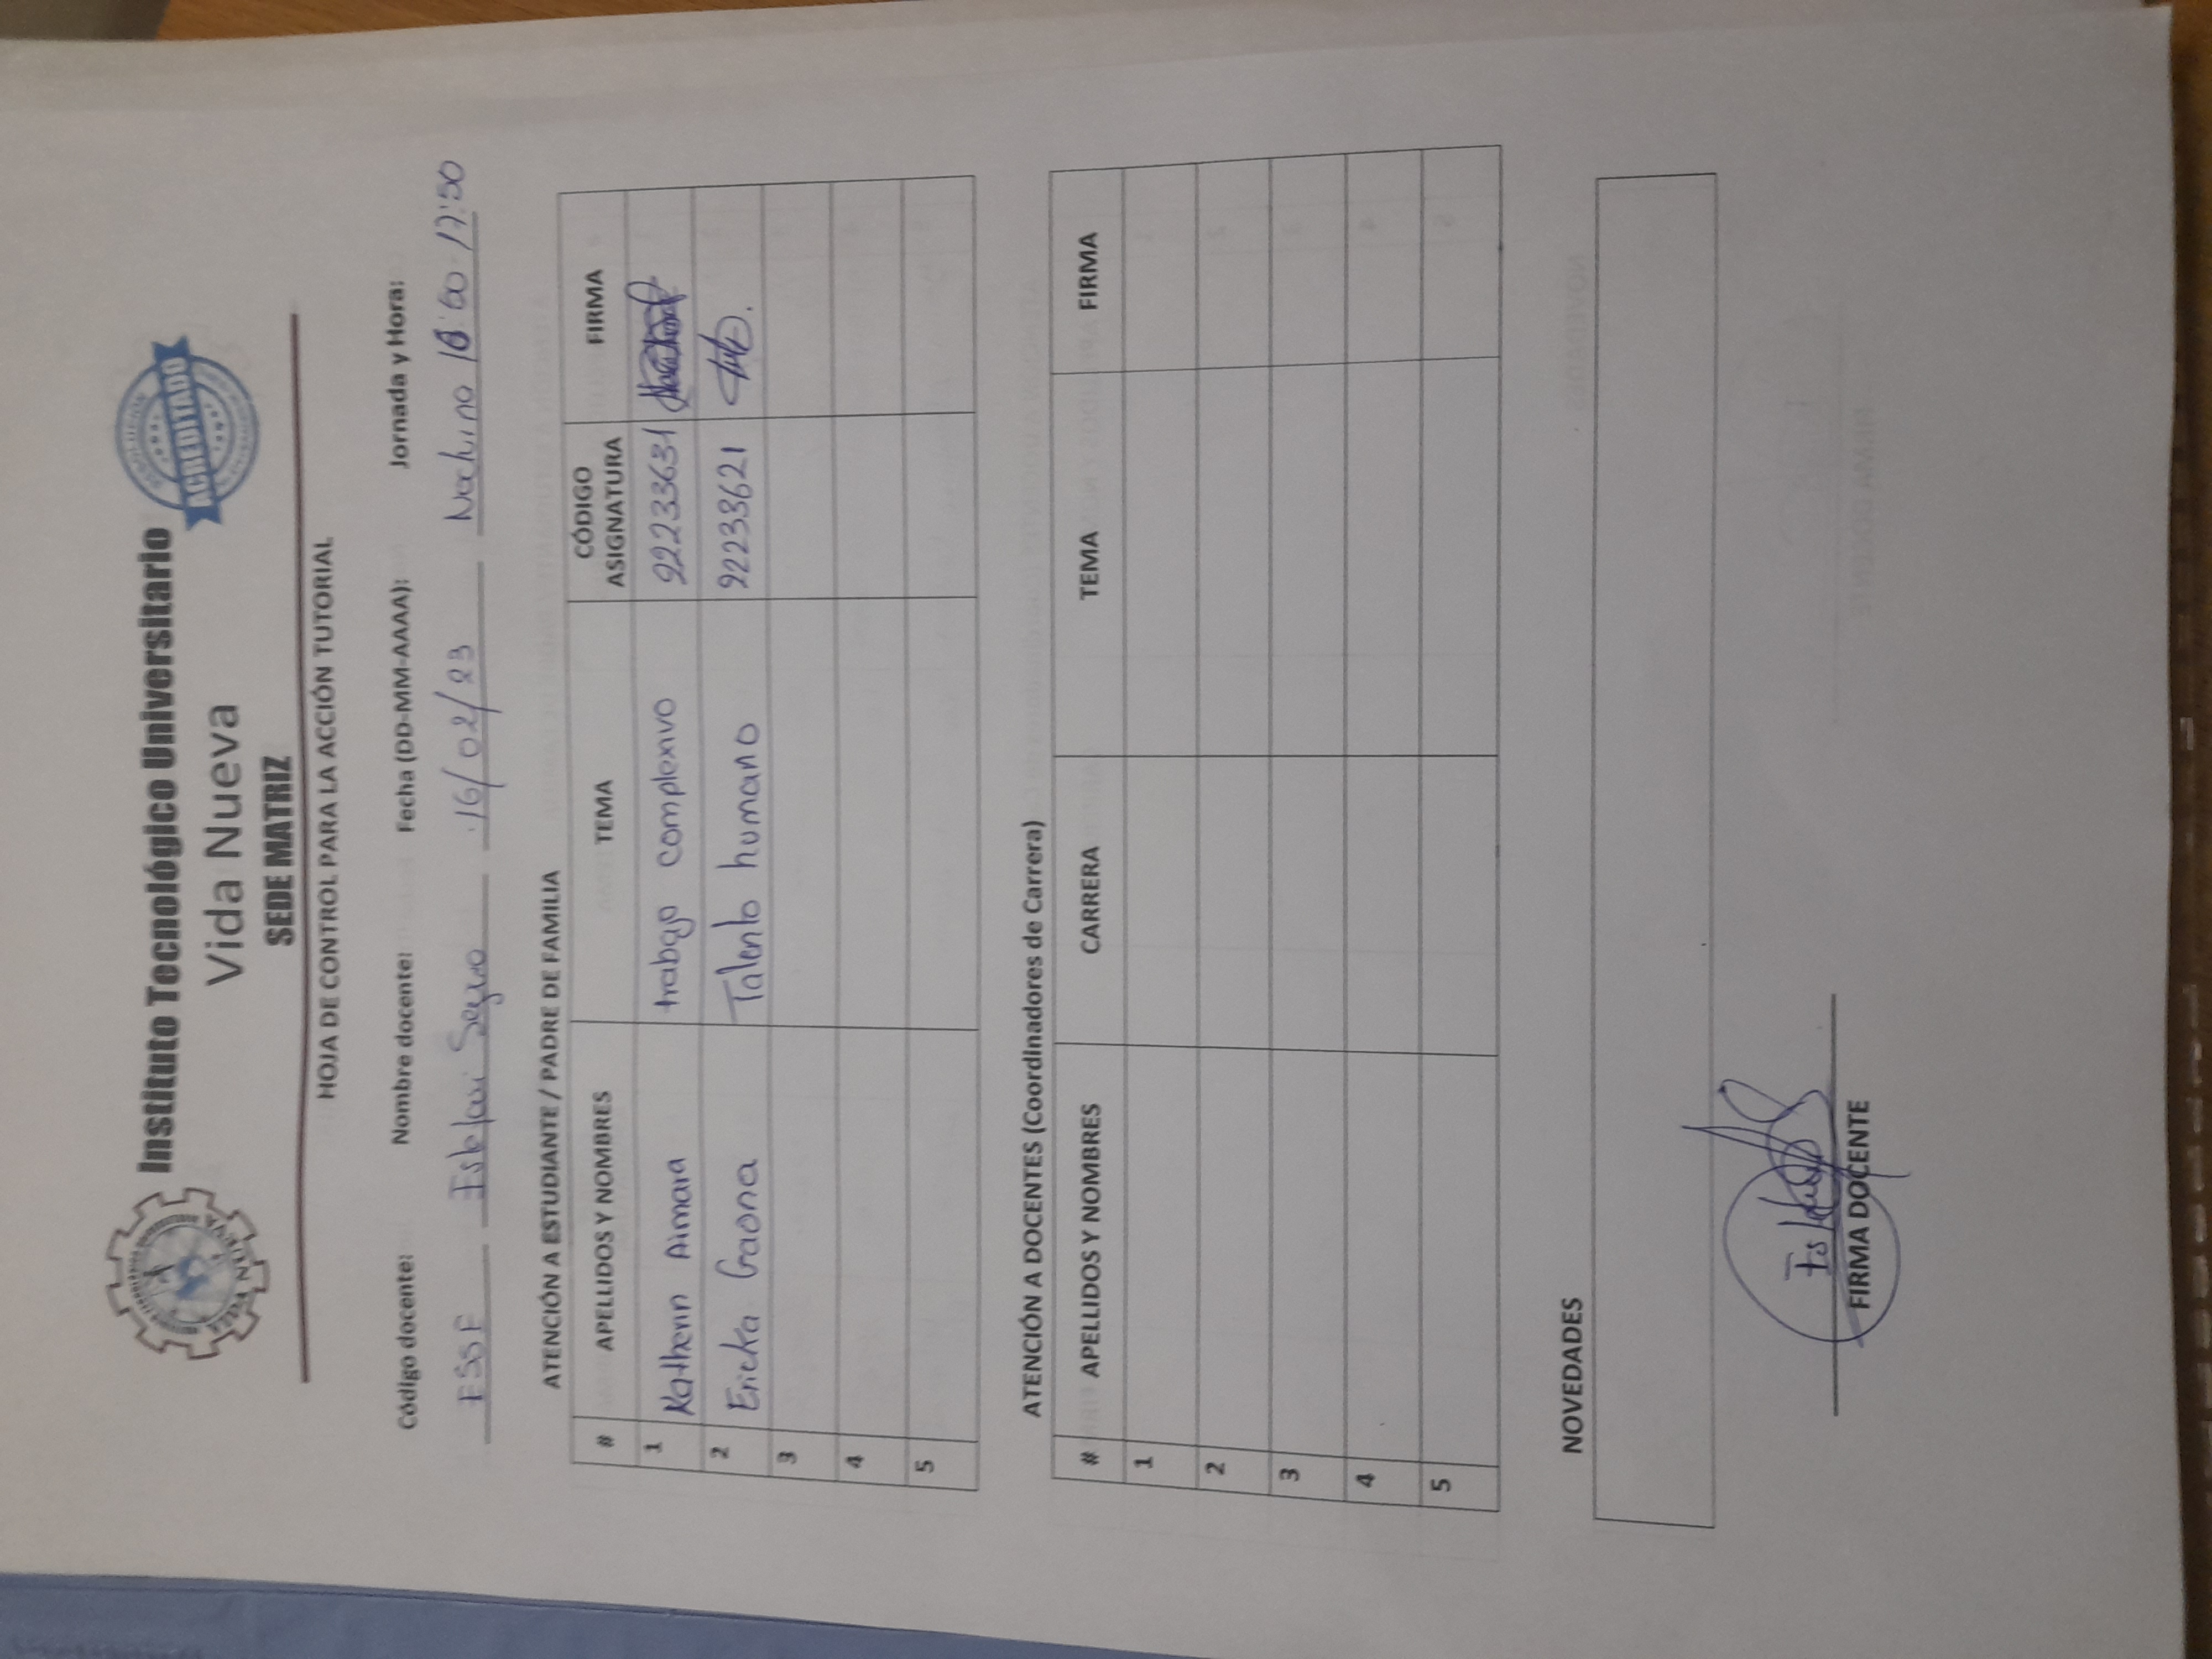 Instituto Tecnológico Universitario
Vida Nueva
SEDE MATRIZ
VIDA NUEVA
ACREDITADO
HOJA DE CONTROL PARA LA ACCIÓN TUTORIAL
Código docente: Nombre docente: Fecha (DD-MM-AAAA): Jornada y Hora:
ESSE 16/02/23 Nocturno 17:50
ATENCIÓN A ESTUDIANTE / PADRE DE FAMILIA
# APELLIDOS Y NOMBRES TEMA CÓDIGO ASIGNATURA FIRMA
1 Katherin Aimara trabajo complexivo 22233631
2 Ericka Gaona Talento humano 22233621
3
4
5
ATENCIÓN A DOCENTES (Coordinadores de Carrera)
# APELLIDOS Y NOMBRES CARRERA TEMA FIRMA
1
2
3
4
5
NOVEDADES
FIRMA DOCENTE